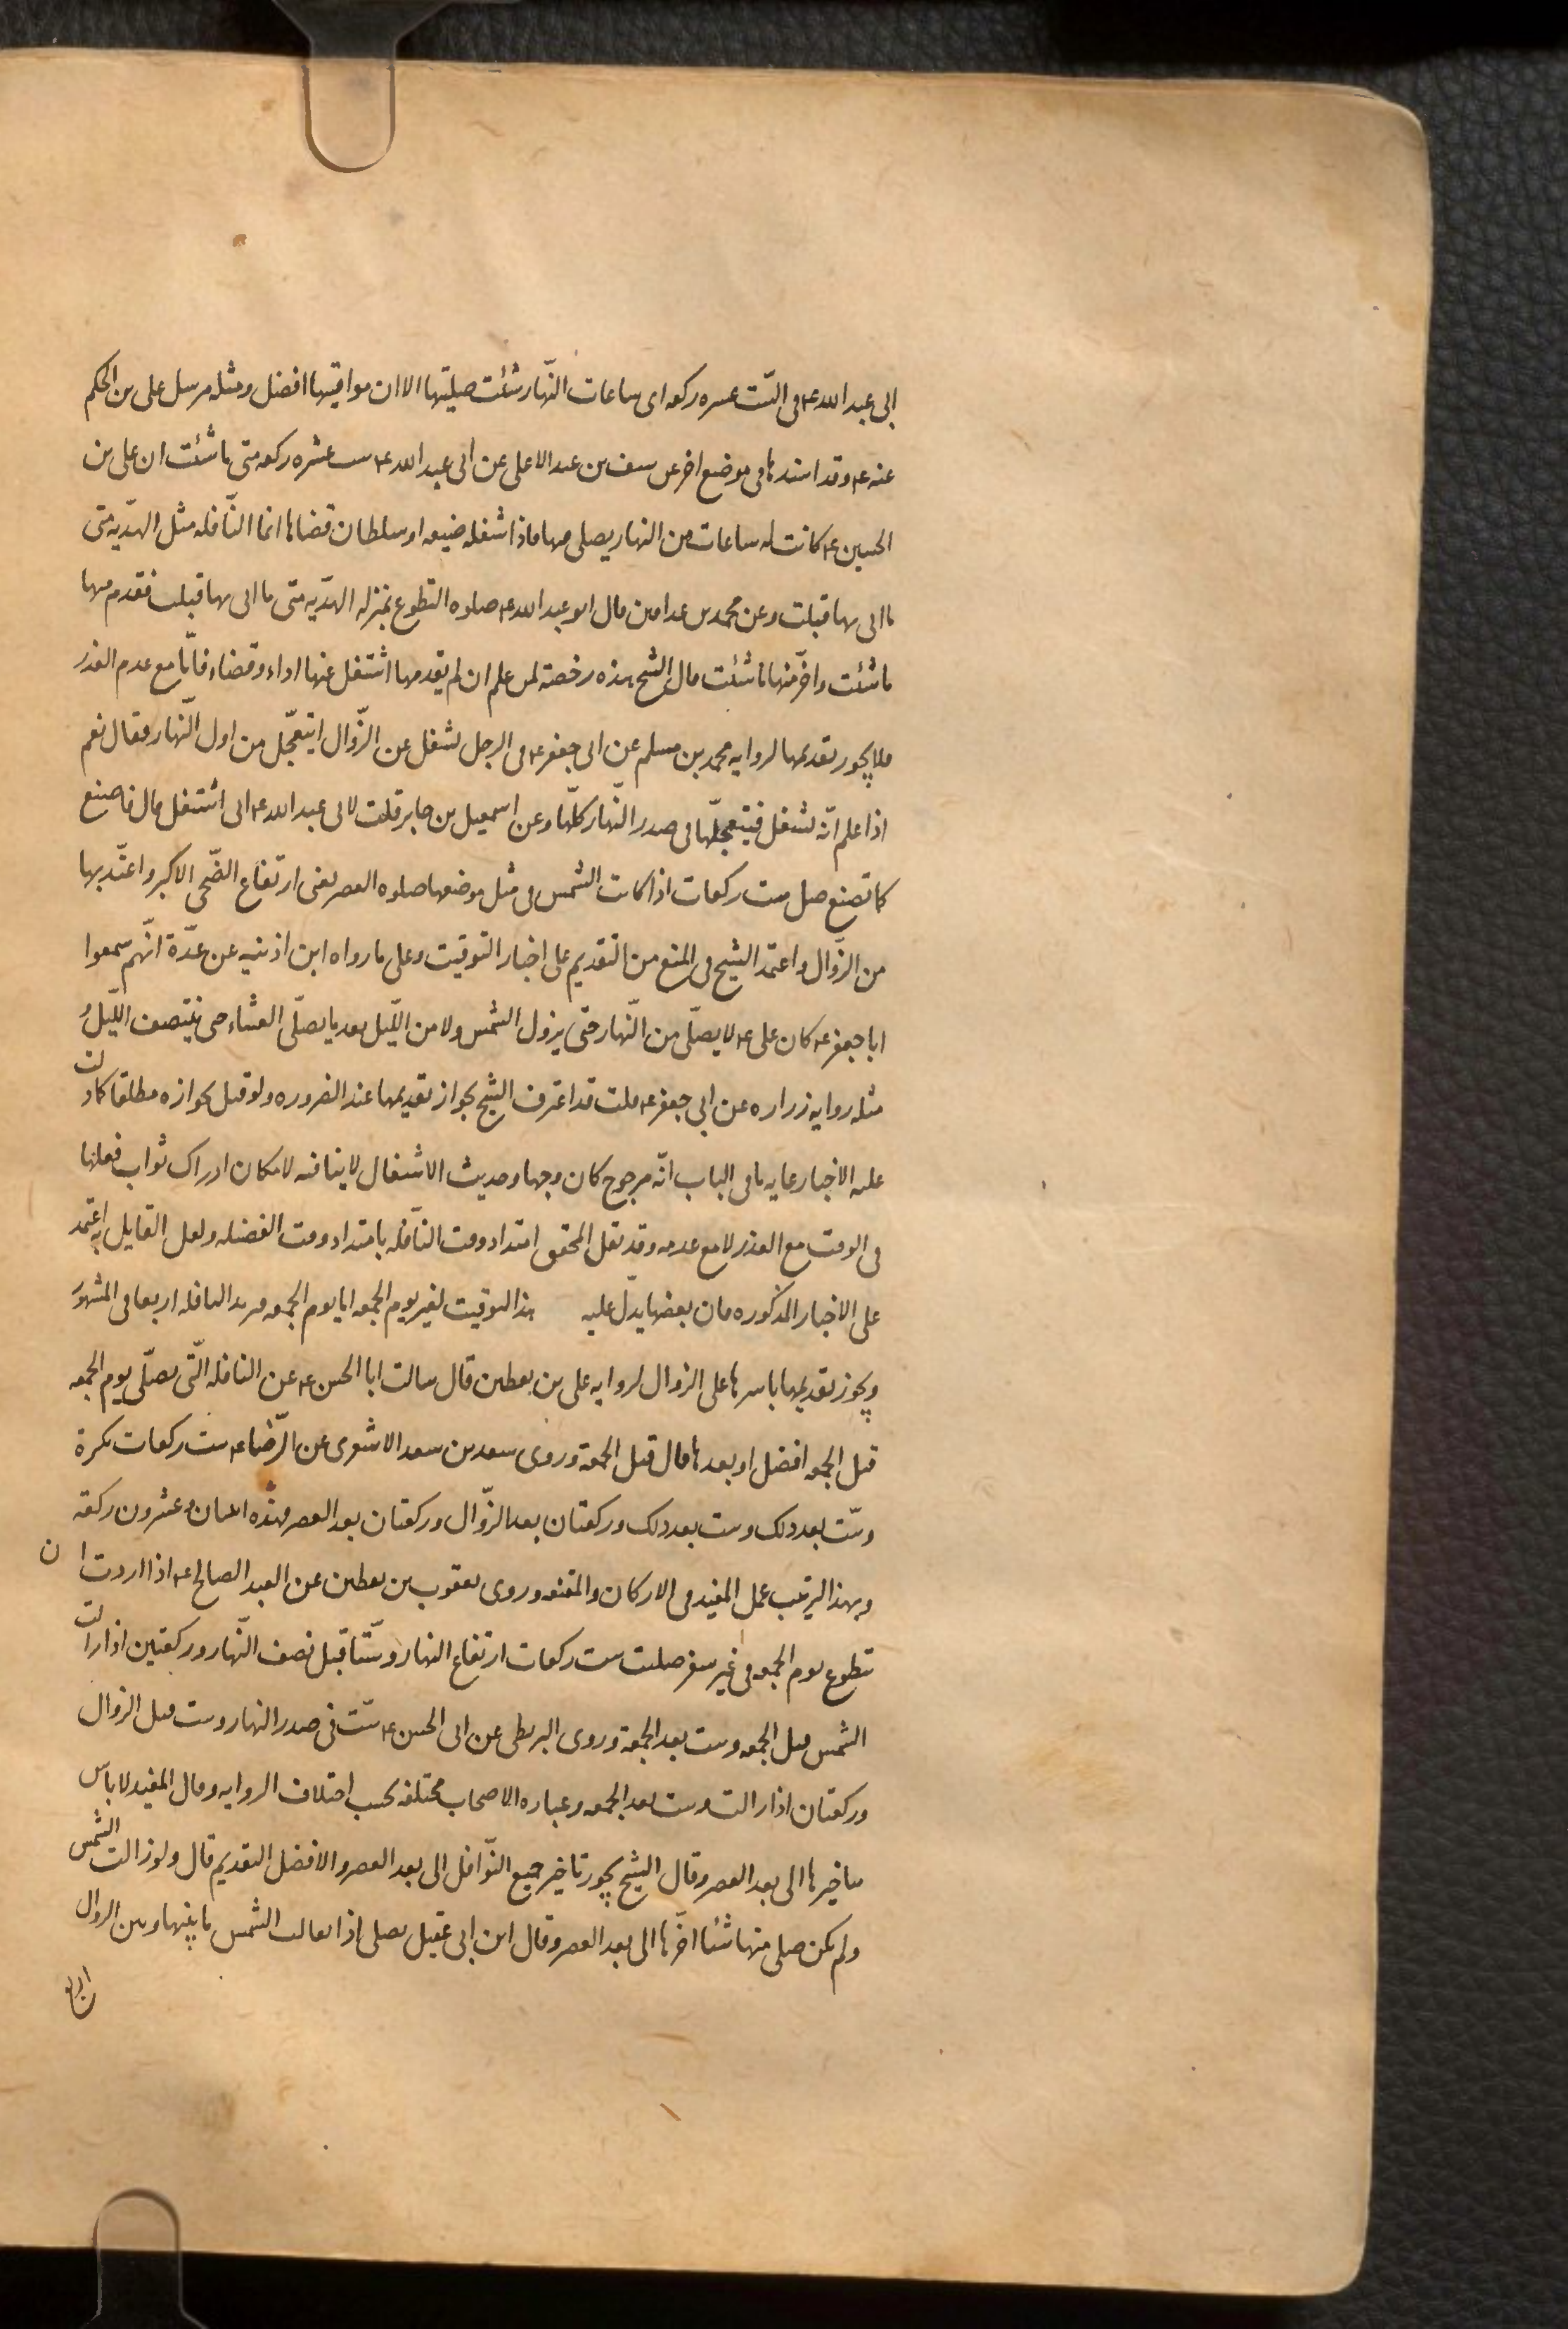 ابى عبد الله ع فى الست عشره ركعه اى ساعات النّهار شئت صليتها الا ان مواقيتها افضل ومثله مرسل على بن الحكم
عنه ع وقد اسندها فى موضع اخر عن سيف بن عبد الاعلى عن ابى عبد الله ع ست عشره ركعه متى ما شئت ان على بن
الحسين ع كانت له ساعات من النهار يصلى فيها فاذا شغله ضيعه او سلطان قضاها انما النّافله مثل الهديّه متى
ما اتى بها قبلت وعن محمد بن عذافر قال ابو عبد الله ع صلوه التطوع بمنزله الهديّه متى ما اتى بها قبلت فقدم منها
ما شئت واخّر منها ما شئت قال الشيخ هذه رخصة لمن علم ان لم يقدمها اشتغل عنها اداء وقضاء فامّا مع عدم العذر
فلا يجوز تقديمها لروايه محمد بن مسلم عن ابى جعفر ع فى الرجل يشغل عن الزّوال ايتعجّل من اول النّهار فقال نعم
اذا علم انّه يشغل فيتعجّلها فى صدر النّهار كلّها وعن اسمعيل بن جابر قلت لابى عبد الله ع انى اشتغل قال فاصنع
كما تصنع صل ست ركعات اذا كانت الشمس فى مثل موضعها صلوه العصر يعنى ارتفاع الضّحى الاكبر واعتدّ بها
من الزّوال واعتمد الشيخ فى المنع من التقديم على اخبار التوقيت وعلى ما رواه ابن اذينه عن عدّة انّهم سمعوا
ابا جعفر ع كان على ع لا يصلّى من النّهار حتى يزول الشمس ولا من اللّيل بعد ما يصلّى العشاء حتى ينتصف اللّيل و
مثله روايه زراره عن ابى جعفر ع قلت قد اعترف الشيخ بجواز تقديمها عند الضروره ولو قيل بجوازه مطلقا كما دلت
عليه الاخبار غايه ما فى الباب انّه مرجوح كان وجها وحديث الاشتغال لا ينافيه لامكان ادراك ثواب فعلها
فى الوقت مع العذر لا مع عدمه وقد نقل المحقق امتداد وقت النّافله بامتداد وقت الفضيله ولعل القايل به اعتمد
على الاخبار المذكوره فان بعضها يدلّ عليه هذا التوقيت لغير يوم الجمعه اما يوم الجمعه فيزيد النافله اربعا فى المشهور
ويجوز تقديمها باسرها على الزوال لروايه على بن يقطين قال سالت ابا الحسن ع عن النافله الّتى تصلّى يوم الجمعه
قبل الجمعه افضل او بعدها قال قبل الجمعة وروى سعد بن سعد الاشعرى عن الرّضا ع ست ركعات بكرة
وستّ بعد ذلك وست بعد ذلك وركعتان بعد الزّوال وركعتان بعد العصر فهذه اثنتان وعشرون ركعة
وبهذا الترتيب عمل المفيد فى الاركان والمقنعه وروى يعقوب بن يقطين عن العبد الصالح ع اذا اردت ان
تطوع يوم الجمعه فى غير سفر صليت ست ركعات ارتفاع النهار وستّا قبل نصف النّهار وركعتين اذا زالت
الشمس قبل الجمعه وست بعد الجمعة وروى البزنطى عن ابى الحسن ع ستّ فى صدر النهار وست قبل الزوال
وركعتان اذا زالت وست بعد الجمعه وعباره الاصحاب مختلفه بحسب اختلاف الروايه وقال المفيد لا باس
بتاخيرها الى بعد العصر وقال الشيخ يجوز تاخير جميع النّوافل الى بعد العصر والافضل التقديم قال ولو زالت الشمس
ولم يكن صلى منها شئا اخّرها الى بعد العصر وقال ابن ابى عقيل يصلى اذا تعالت الشمس ما بينها وبين الزوال